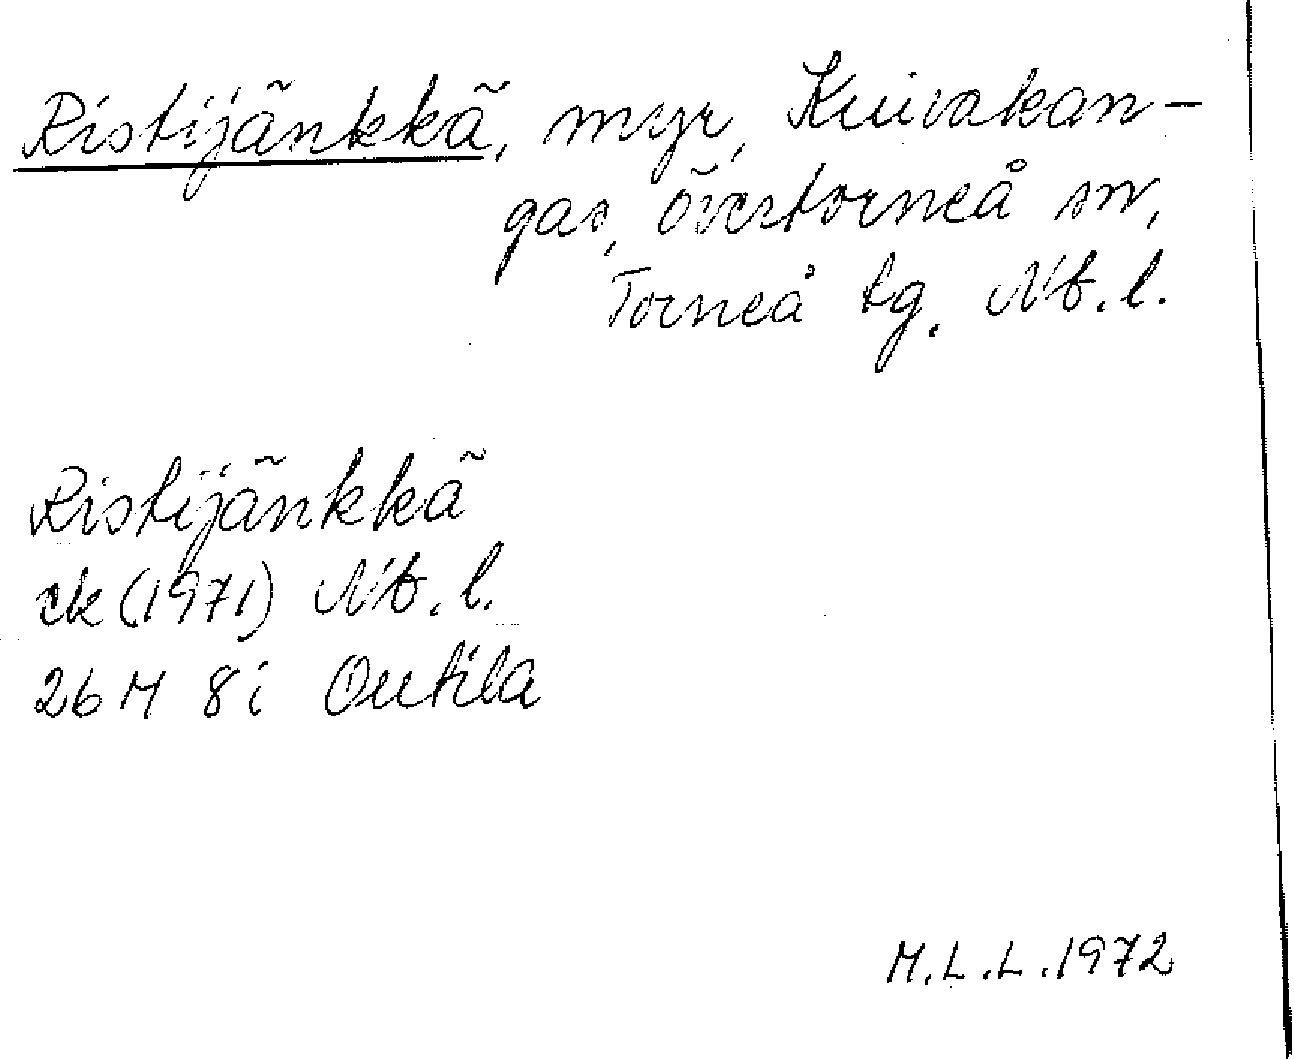 Ristijänkkä, myr, Kuivakan-
gas, Övertorneå sn,
Torneå tg. Nb. l.
Ristijänkkä
ek (1971) Nb. l.
26 M 8i Outila
M.L.L. 1972